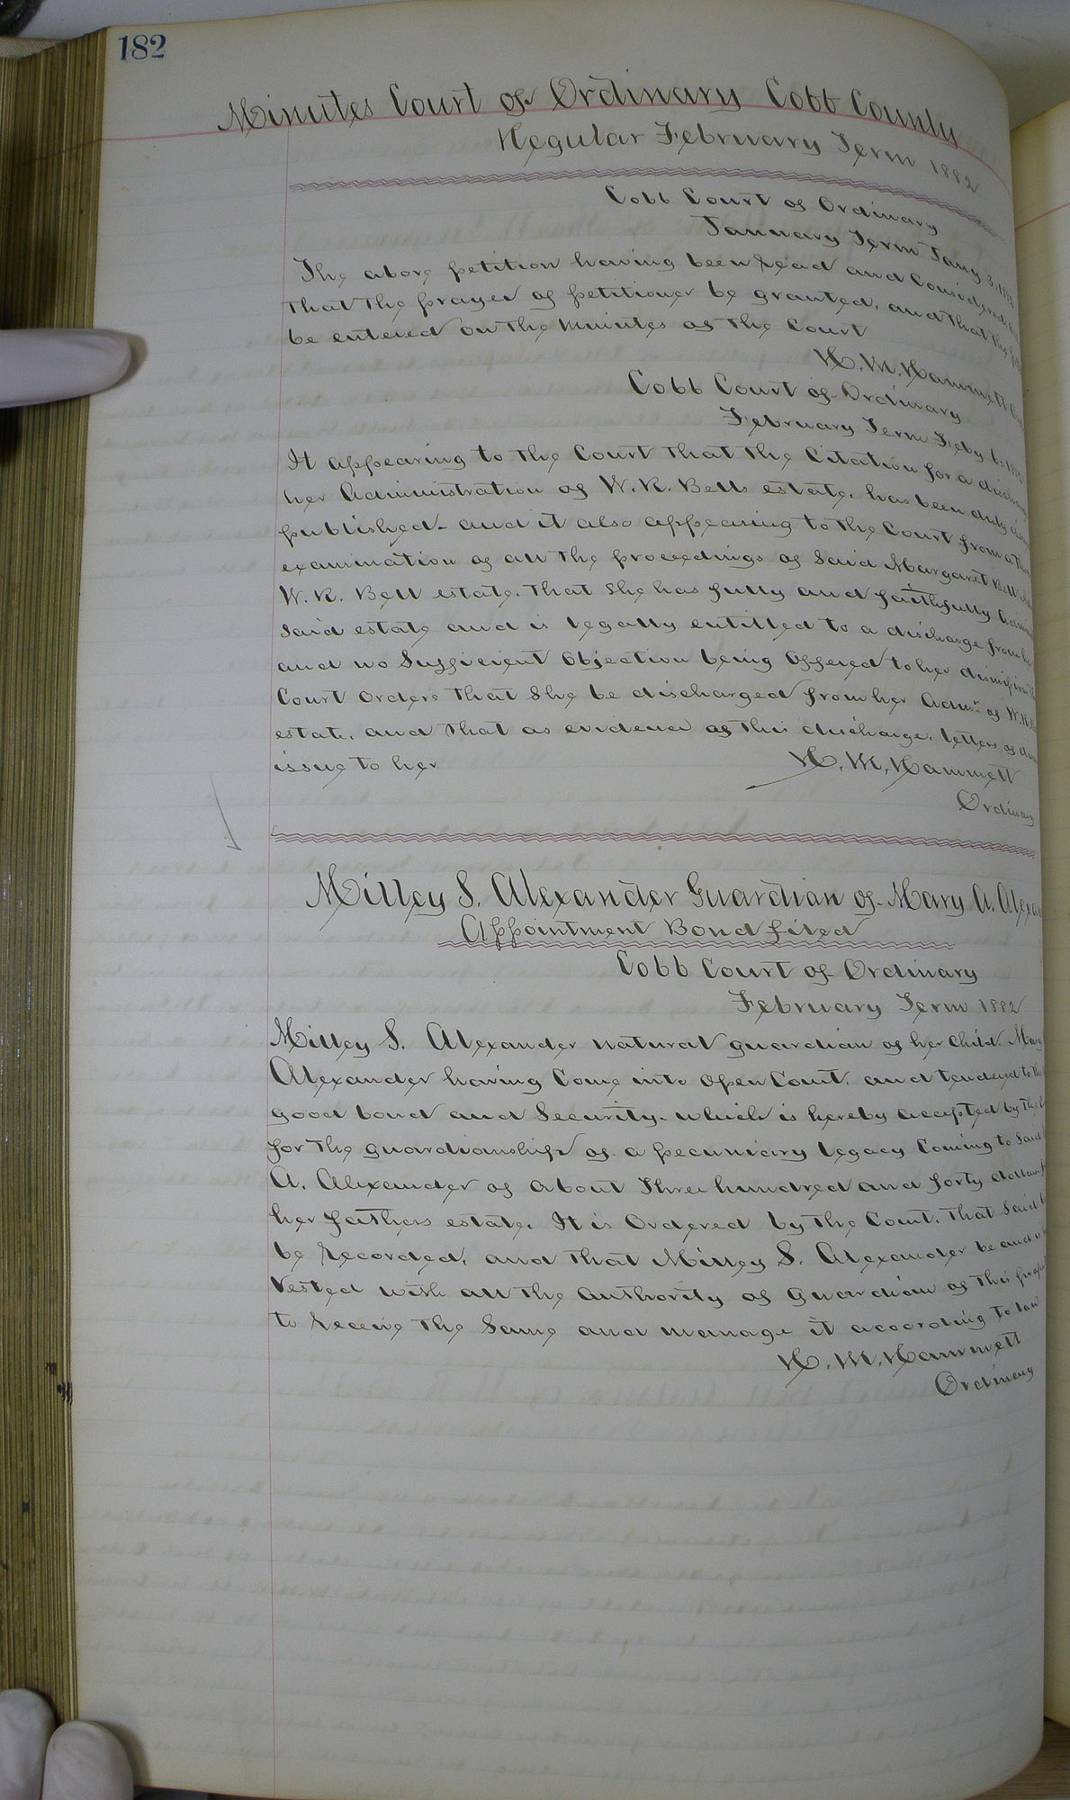 182
Minutes Court of Ordinary Cobb County
Regular February Term 1882
Cobb Court of Ordinary
January Term Jany 3, 188
The above petition having been read and Considered
that the prayer of petitioner be granted, and that the
be entered on the Minutes of the Court
H. M. Hammett
Cobb Court of Ordinary
February Term Feby 6, 188
It appearing to the Court that the Citation for a
her Administration of W. R. Bells estate, has been duly
published, and it also appearing to the Court from a
examination of all the proceedings of Said Margaret Bell
W. R. Bell estate, that She has fully and faithfully
Said estate and is legally entitled to a discharge from
and no Sufficient Objection being Offered to her
Court Orders that She be discharged from her Admr of W. R.
estate, and that as evidence of this discharge, letters of
issue to her
H. M. Hammett
Ordinary
Milley S. Alexander Guardian of Mary A. Alexa
Appointment Bond filed
Cobb Court of Ordinary
February Term 1882
Milley S. Alexander natural guardian of her Child Mary
Alexander having Come into Open Court, and tendered to the
good bond and Security, which is hereby accepted by the
for the guardianship of a pecuniary legacy Coming to Said
A. Alexander of about Three hundred and forty dollars
her fathers estate, It is Ordered by the Court, that Said
be Recorded, and that Milley S. Alexander be and
Vested with all the Authority of Guardian of this
to Receive the Same and manage it according to law
H. M. Hammett
Ordinary